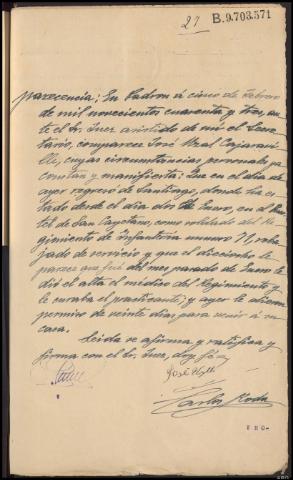 27
B.9.703.571
parecencia: En Padron á cinco de Febrero
de mil novecientos cuarenta y tres, an-
te el Sr. Juez asistido de mi el Secre-
tario, comparece José Real Cajaravi-
lle, cuyas circunstancias personales ya
constan y manifiesta: Que en el dia de
ayer regresó de Santiago, donde ha es-
tado desde el dia dos de Enero, en el Cuar-
tel de San Cayetano, como soldado del Re-
gimiento de Infanteria numero 71, reba-
jado de servicio y que el dieciocho le
parece que fué del mes pasado de Enero le
dió el alta el médico del Regimiento y
le curaba el practicante; y ayer le dieron
permiso de veinte dias para venir á su
casa.
Leida se afirma y ratifica y
firma con el Sr. Juez, doy fé.
José
Carlos